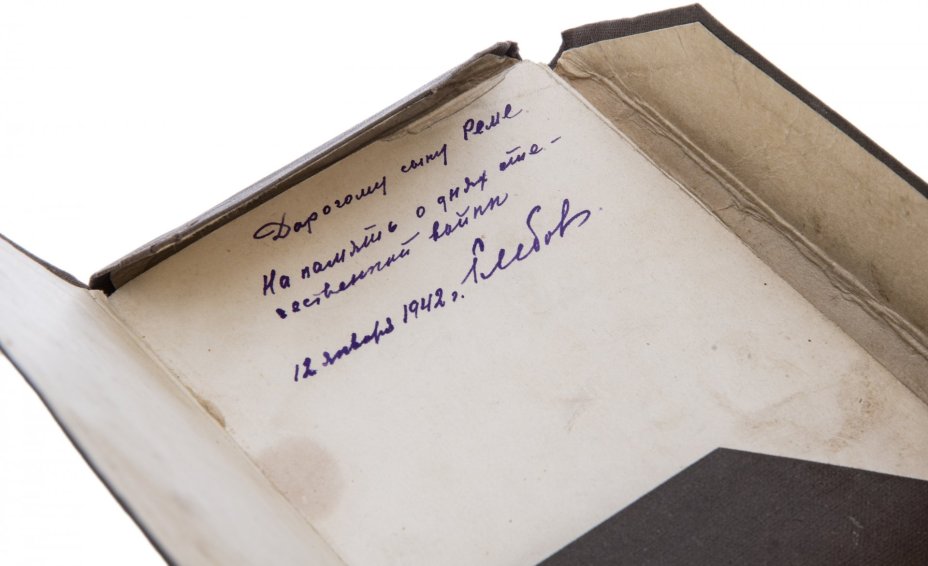 Дорогому сыну Реме
На память о днях оте-
чественной войны
12 января 1942 г. Глебов